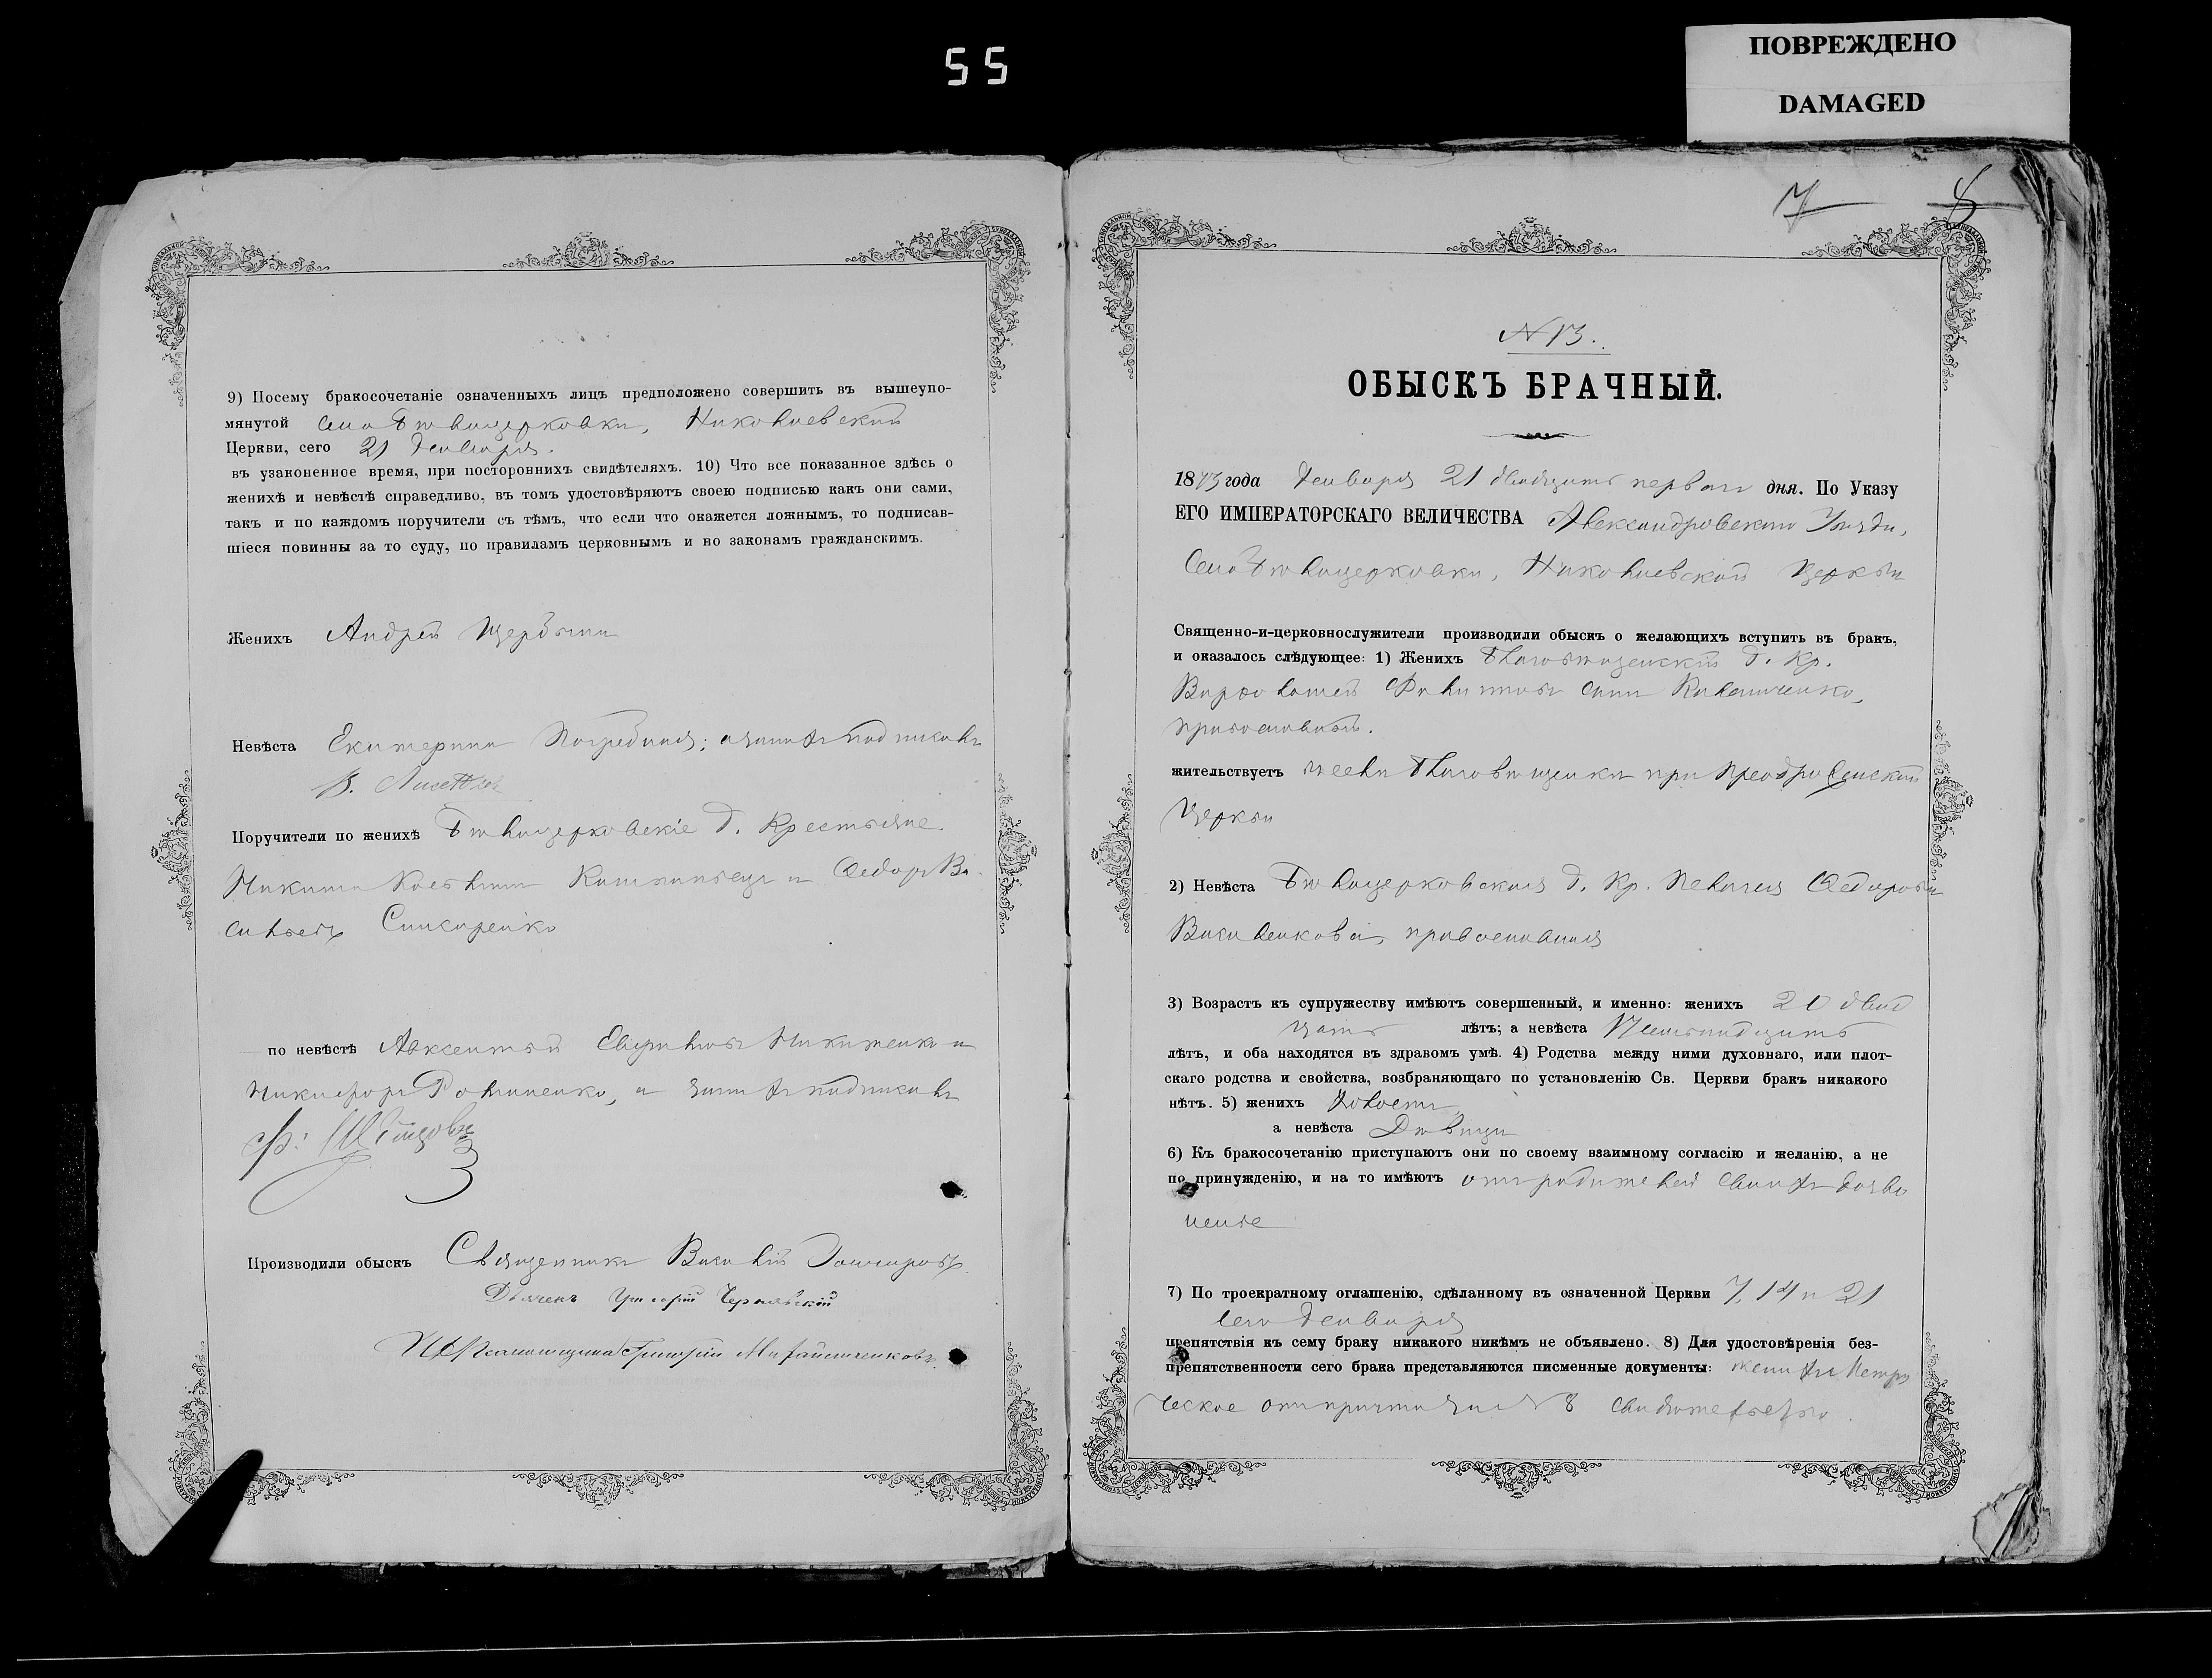 55
ПОВРЕЖДЕНО
DAMAGED
9) Посему бракосочетаніе означенныхъ лицъ предположено совершить въ вышеупо-
мянутой села Бѣлоцерковки, Николаевской
Церкви, сего 21 Генваря.
въ узаконенное время, при постороннихъ свидѣтеляхъ. 10) Что все показанное здѣсь о
женихѣ и невѣстѣ справедливо, въ томъ удостовѣряютъ своею подписью какъ они сами,
такъ и по каждомъ поручители съ тѣмъ, что если что окажется ложнымъ, то подписав-
шіеся повинны за то суду, по правиламъ церковнымъ и по законамъ гражданскимъ.
Женихъ Андрей Щербына
Невѣста Екатерина Погребная; а за нихъ подписалъ
В.
Поручители по женихѣ Бѣлоцерковскіе Г. Крестьяне
Никита и Ѳедоръ Ва-
сильевъ
по невѣстѣ Авксентій Никитенко и
Никифоръ а за нихъ подписалъ
Производили обыскъ Священникъ Василій
Григорій Чернявскій
Григорій
7 8
N 13.
ОБЫСКЪ БРАЧНЫЙ.
1873 года Генваря 21 двадцать перваго дня. По Указу
ЕГО ИМПЕРАТОРСКАГО ВЕЛИЧЕСТВА Александровскаго Уѣзда,
Села Бѣлоцерковки, Николаевской Церкви
Священно-и-церковнослужители производили обыскъ о желающихъ вступить въ бракъ,
и оказалось слѣдующее: 1) Женихъ Благовѣщенскій Г. Кр.
Варѳоломей Филиповъ сынъ
православный.
жительствуетъ въ селѣ Благовѣщенкѣ при Преображенской
Церкви
2) Невѣста Бѣлоцерковская Г. Кр. Пелагея Ѳедорова
Василенкова, православная
3) Возрастъ къ супружеству имѣютъ совершенный, и именно: женихъ 20 двад
цать лѣтъ; а невѣста
лѣтъ, и оба находятся въ здравомъ умѣ. 4) Родства между ними духовнаго, или плот-
скаго родства и свойства, возбраняющаго по установленію Св. Церкви бракъ никакого
нѣтъ. 5) женихъ холостъ
а невѣста Дѣвица
6) Къ бракосочетанію приступаютъ они по своему взаимному согласію и желанію, а не
по принужденію, и на то имѣютъ отъ родителей своихъ дозво
леніе
7) По троекратному оглашенію, сдѣланному въ означенной Церкви 7, 14 и 21
сего Генваря
препятствія къ сему браку никакого никѣмъ не объявлено. 8) Для удостовѣренія без-
препятственности сего брака представляются писменные документы: жениха Метри
ческое отъ причта за N 8 свидѣтельство.